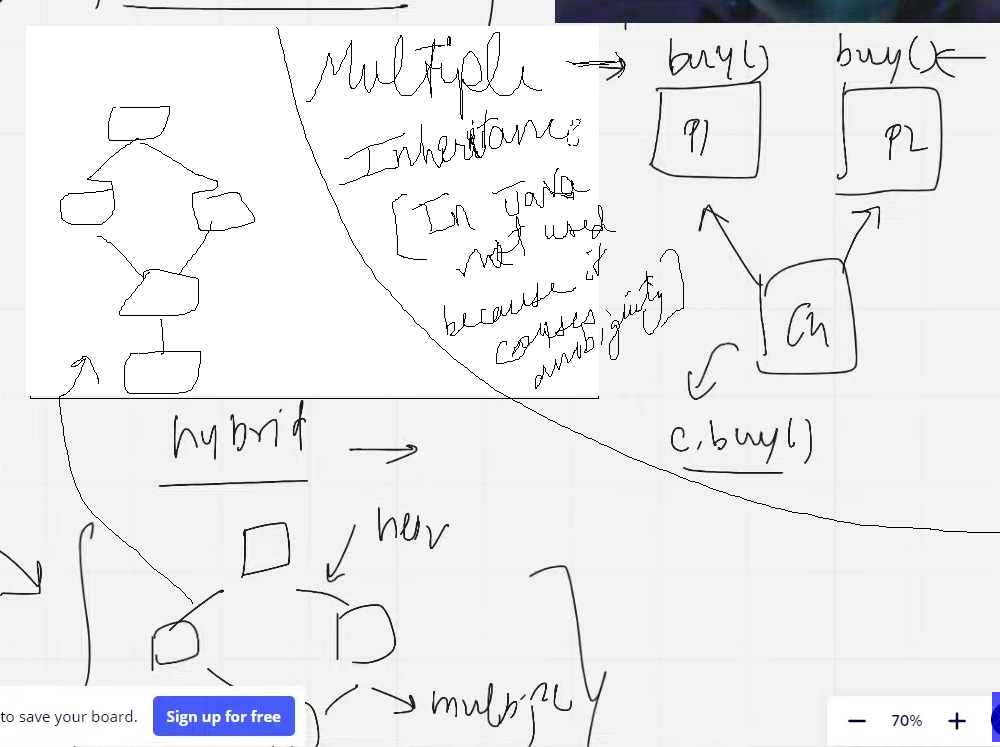 Multiple
Inheritance
[In Java
not used
because it
causes
ambiguity]
buy()
buy()
P1
P2
Ch
c.buy()
hybrid
multiple
to save your board.
Sign up for free
70%